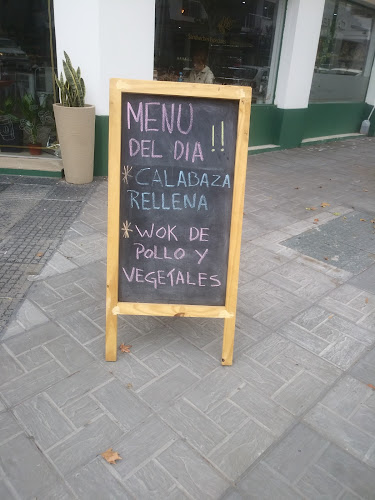 MENU
DEL DIA !!
* CALABAZA
RELLENA
* WOK DE
POLLO Y
VEGETALES